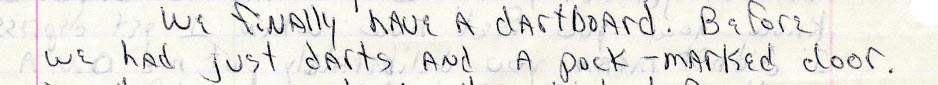 We finally have a dartboard. Before
we had just darts and a pock-marked door.